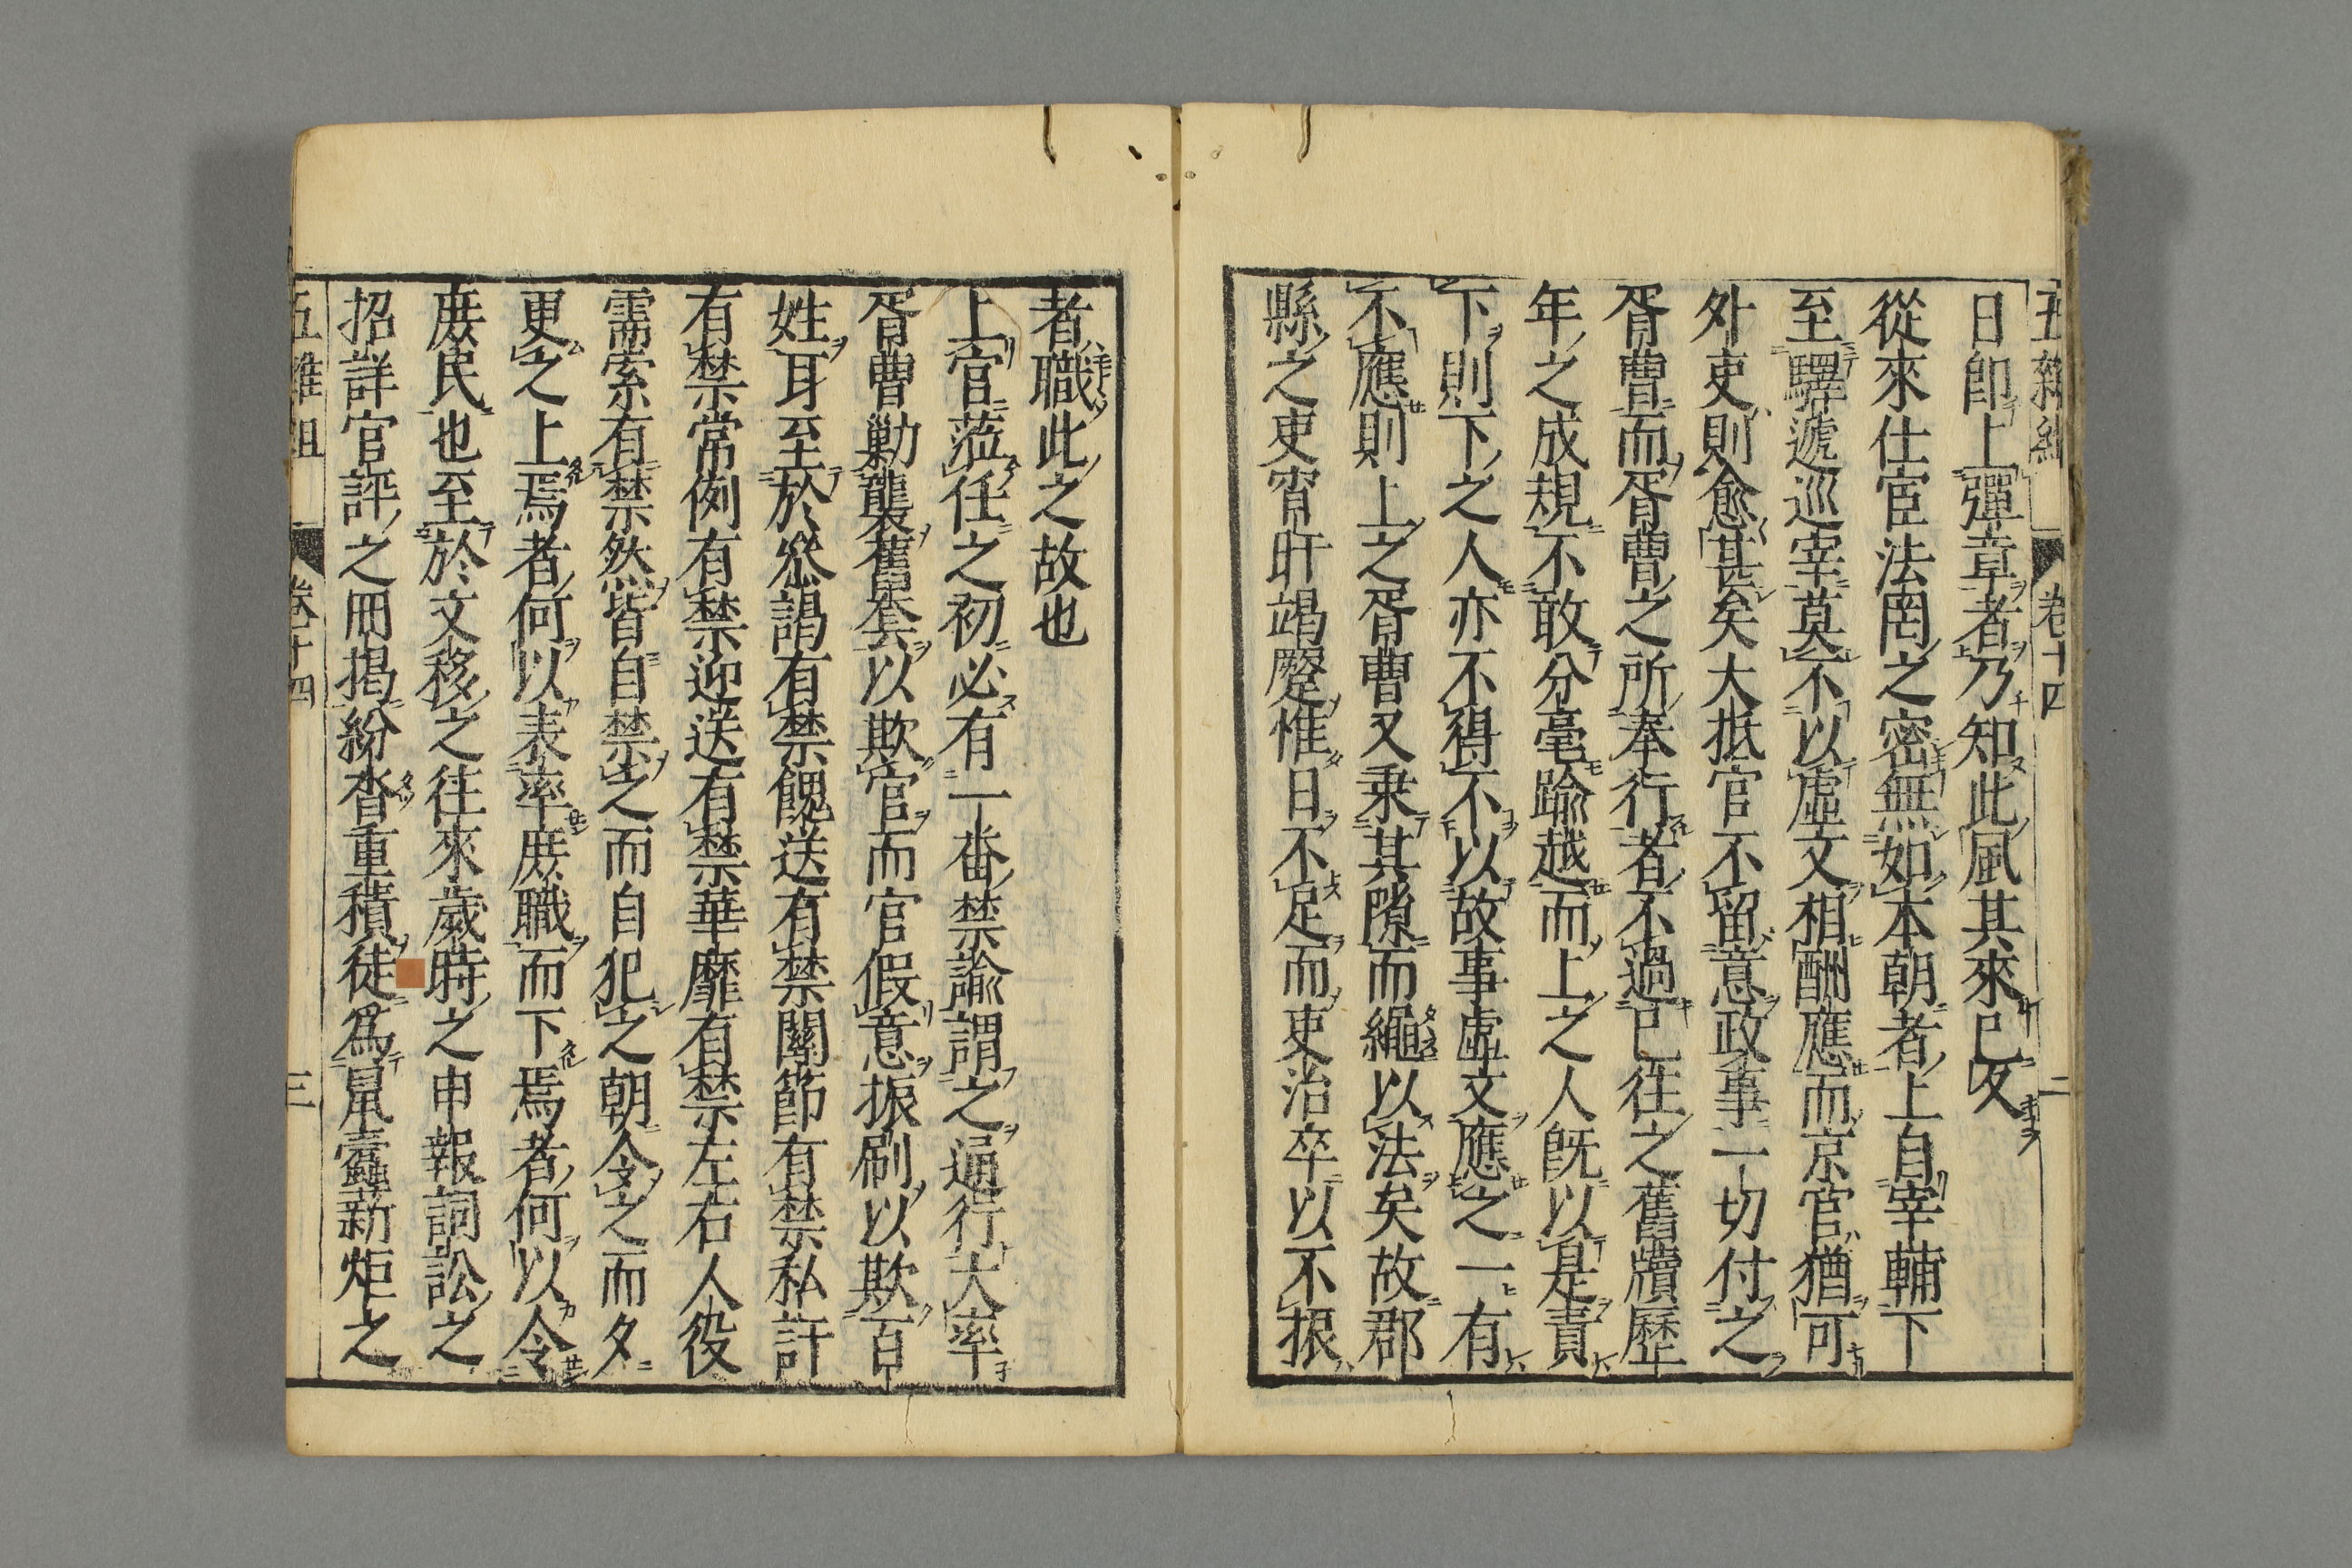 五雜組 卷十四 二
日卽上彈章者乃知此風其來已久
從來仕宦法罔之密無如本朝者上自宰輔下
至驛遞巡宰莫不以虛文相酬應而京官猶可
外吏則愈甚矣大抵官不留意政事一切付之
胥曹而胥曹之所奉行者不過已往之舊牘歷
年之成規不敢分毫踰越而上之人旣以是責
下則下之人亦不得不以故事虛文應之一有
不應則上之胥曹又乗其隙而繩以法矣故郡
縣之吏宵旰竭蹷惟日不足而吏治卒以不振
者職此之故也
上官蒞任之初必有一畨禁諭謂之通行大率
胥曹勦襲舊套以欺官而官假意振刷以欺百
姓耳至於叅謁有禁餽送有禁關節有禁私訐
有禁常例有禁迎送有禁華靡有禁左右人役
需索有禁然皆自禁之而自犯之朝令之而夕
更之上焉者何以表率庻職而下焉者何以令
庻民也至於文移之往來歲時之申報詞訟之
招詳官評之冊揭紛沓重積徒爲鼠蠹薪炬之
五雜組 卷十四 三